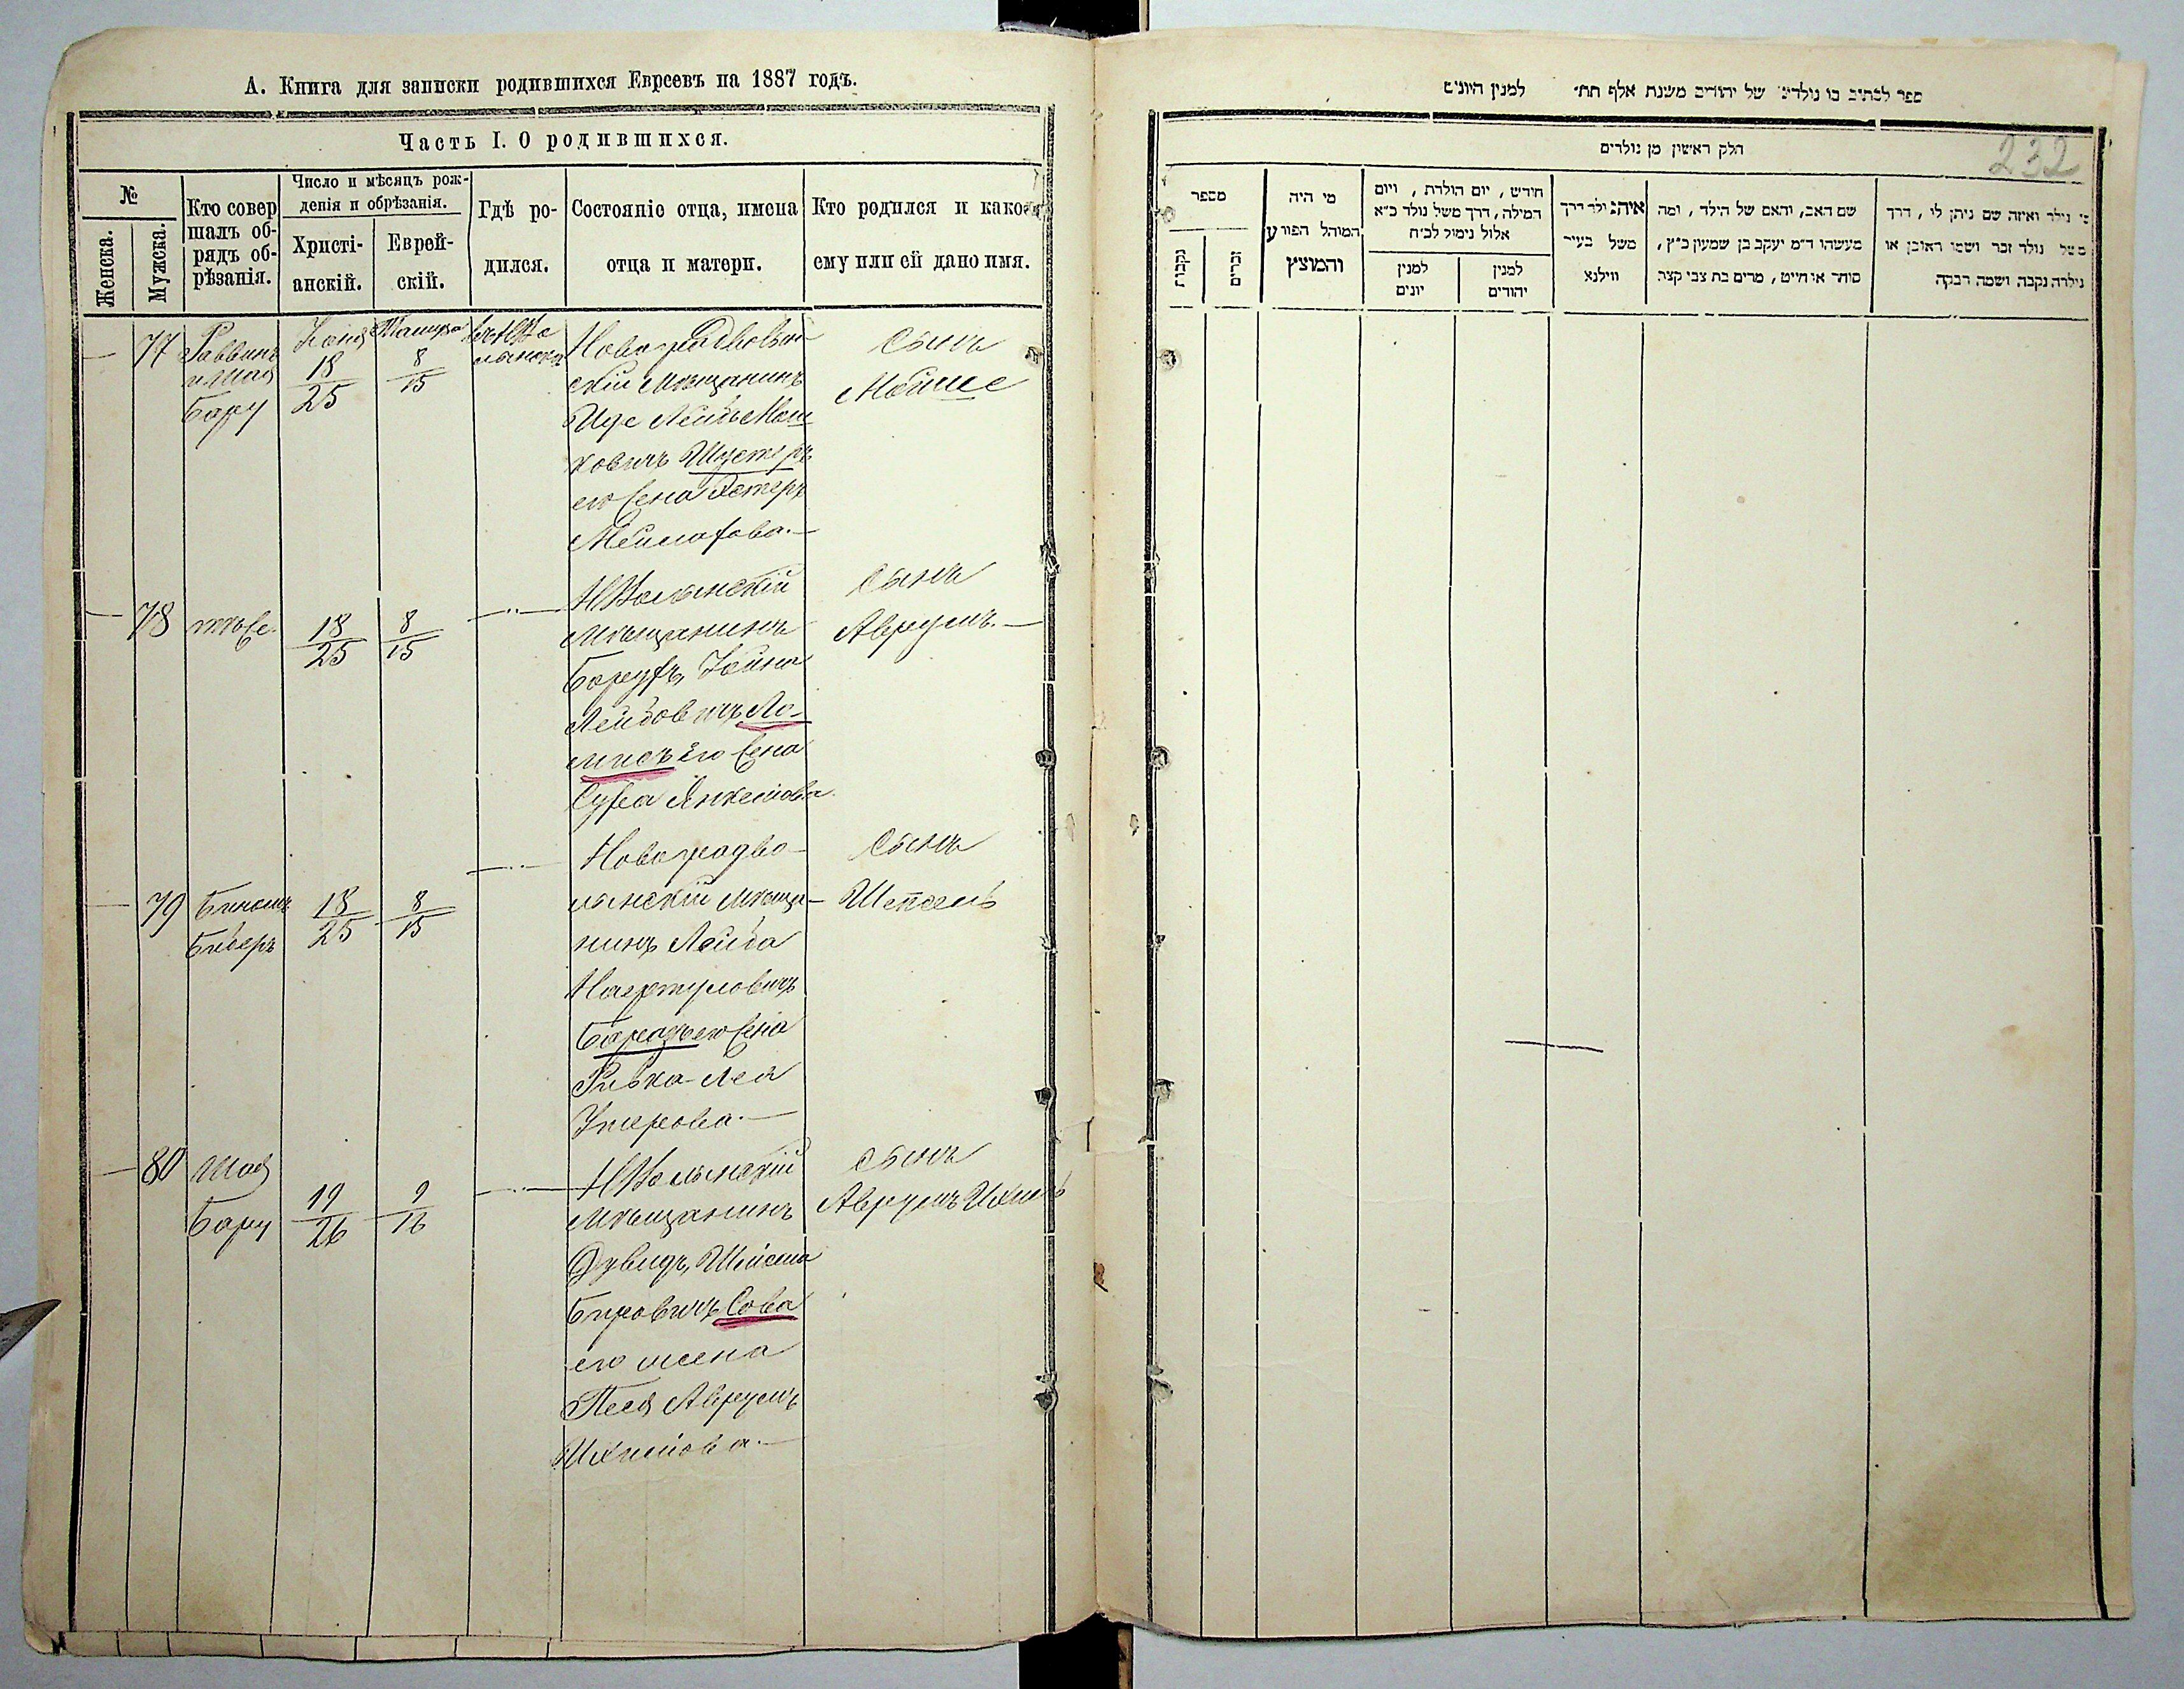 А. Книга для записки родившихся Евреевъ на 1887 годъ.
Часть I. О родившихся.
№
Женска.
Мужска.
Кто совер
шалъ об-
рядъ об-
рѣзанія.
Число и мѣсяцъ рож-
денія и обрѣзанія.
Христі-
анскій.
Еврей-
скій.
Гдѣ ро-
дился.
Состояніе отца, имена
отца и матери.
Кто родился и какое
ему или ей дано имя.
— 77
Раввинъ
и Шая
Бару
Іюня
18
25
Тамуза
8
15
Новоградволын-
скій мѣщанинъ
Иде Лейбъ Мош
ковичъ Шустеръ
его жена Эстеръ
сынъ
Мойше
— 78
тѣже
18
25
8
15
— " —
НВолынскій
мѣщанинъ
Борухъ, Іойна
Лейбовичъ Ло-
мисъ его жена
Сура Янкелева
сынъ
Аврумъ. —
— 79
Биномъ
Биберъ
18
25
8
15
— " —
Новоградво-
лынскій мѣща-
нинъ Лейба
его жена
Ривка-Леа
сынъ
Шепсель
— 80
Шая
Бару
19
26
9
16
— " —
НВолынскій
мѣщанинъ
Дувидъ, Шлема
Беровичъ Сова
его жена
Песя Аврумъ
сынъ
ספר לכתוב בו נולדים של יהודים משנת אלף תת״ למנין היונים
232
חלק ראשון מן נולדים
מספר
נקבות
זכרים
מי היה
המוהל הפורע
והמוצץ
חודש, יום הולדת, ויום
המילה, דרך משל נולד כ״א
אלול נימול לכ״ח
למנין
יונים
למנין
יהודים
איה נילד דרך
משל בעיר
ווילנא
שם האב, והאם של הילד, ומה
מעשהו ד״מ יעקב בן שמעון כ״ץ,
סוחר או חייט, מרים בת צבי קצב
מי נילד ואיזה שם ניתן לו, דרך
משל נולד זכר ושמו ראובן או
נילדה נקבה ושמה רבקה